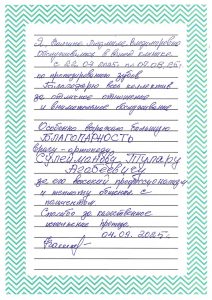 Я, Валиева Людмила Владимировна
обслуживалась в вашей клинике
с 22.04.2025г. по 04.09.25г.
по протезированию зубов
Благодарю весь коллектив
за отличное отношение
и внимательное обслуживание
Особенно выражаю большую
БЛАГОДАРНОСТЬ
врачу-ортопеду
Сулейманову Тупару
Агабеевичу
за его высокий профессионализм
и теплому общению с
пациентом
Спасибо за качественное
изготовление протеза
04.09.2025г.